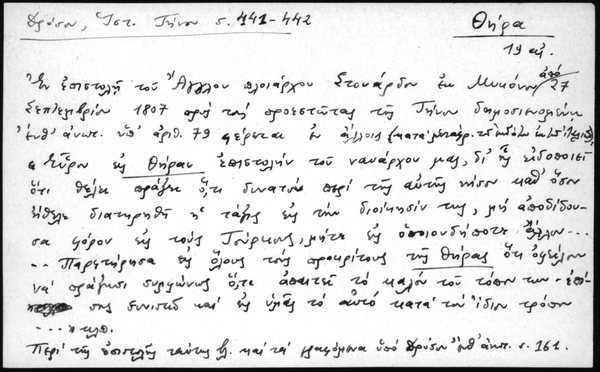 Δρόσου, Ἱστ. Τήνου σ. 441-442
Θήρα
19 αἰ.
Ἐν ἐπιστολῇ τοῦ Ἄγγλου πλοιάρχου Στουάρδου ἐκ Μυκόνου ἀπό 27
Σεπτεμβρίου 1807 πρός τούς προεστῶτας τῆς Τήνου δημοσιευομένῃ
ἔνθ' ἀνωτ. ὑπ' ἀριθ. 79 φέρεται ἐν ἄλλοις (κατά μετάφρ. τοῦ ἐκδότου ἐκ τοῦ
« Εὗρον εἰς Θήραν ἐπιστολήν τοῦ ναυάρχου μας, δι' ἧς εἰδοποιεῖ
ὅτι θέλει πράξει ὅ,τι δυνατόν περί τῆς αὐτῆς νήσου καθ' ὅσον
ἤθελε διατηρηθῆ ἡ τάξις εἰς τήν διοίκησίν της, μή ἀποδίδου-
σα φόρον εἰς τούς Τούρκους, μήτε εἰς ὁποιονδήποτε ἄλλον...
.. Παρετήρησα εἰς ὅλους τούς προκρίτους τῆς Θήρας ὅτι ὀφείλουν
νά πράξωσι συμφώνως ὅ,τι ἀπαιτεῖ τό καλόν τοῦ τόπου των
σης συνιστῶ καί εἰς ὑμᾶς τό αὐτό κατά τόν ἴδιον τρόπον
... » κλπ.
Περί τῆς ἐπιστολῆς ταύτης βλ. καί τά γραφόμενα ὑπό Δρόσου ἔνθ' ἀνωτ. σ. 161.